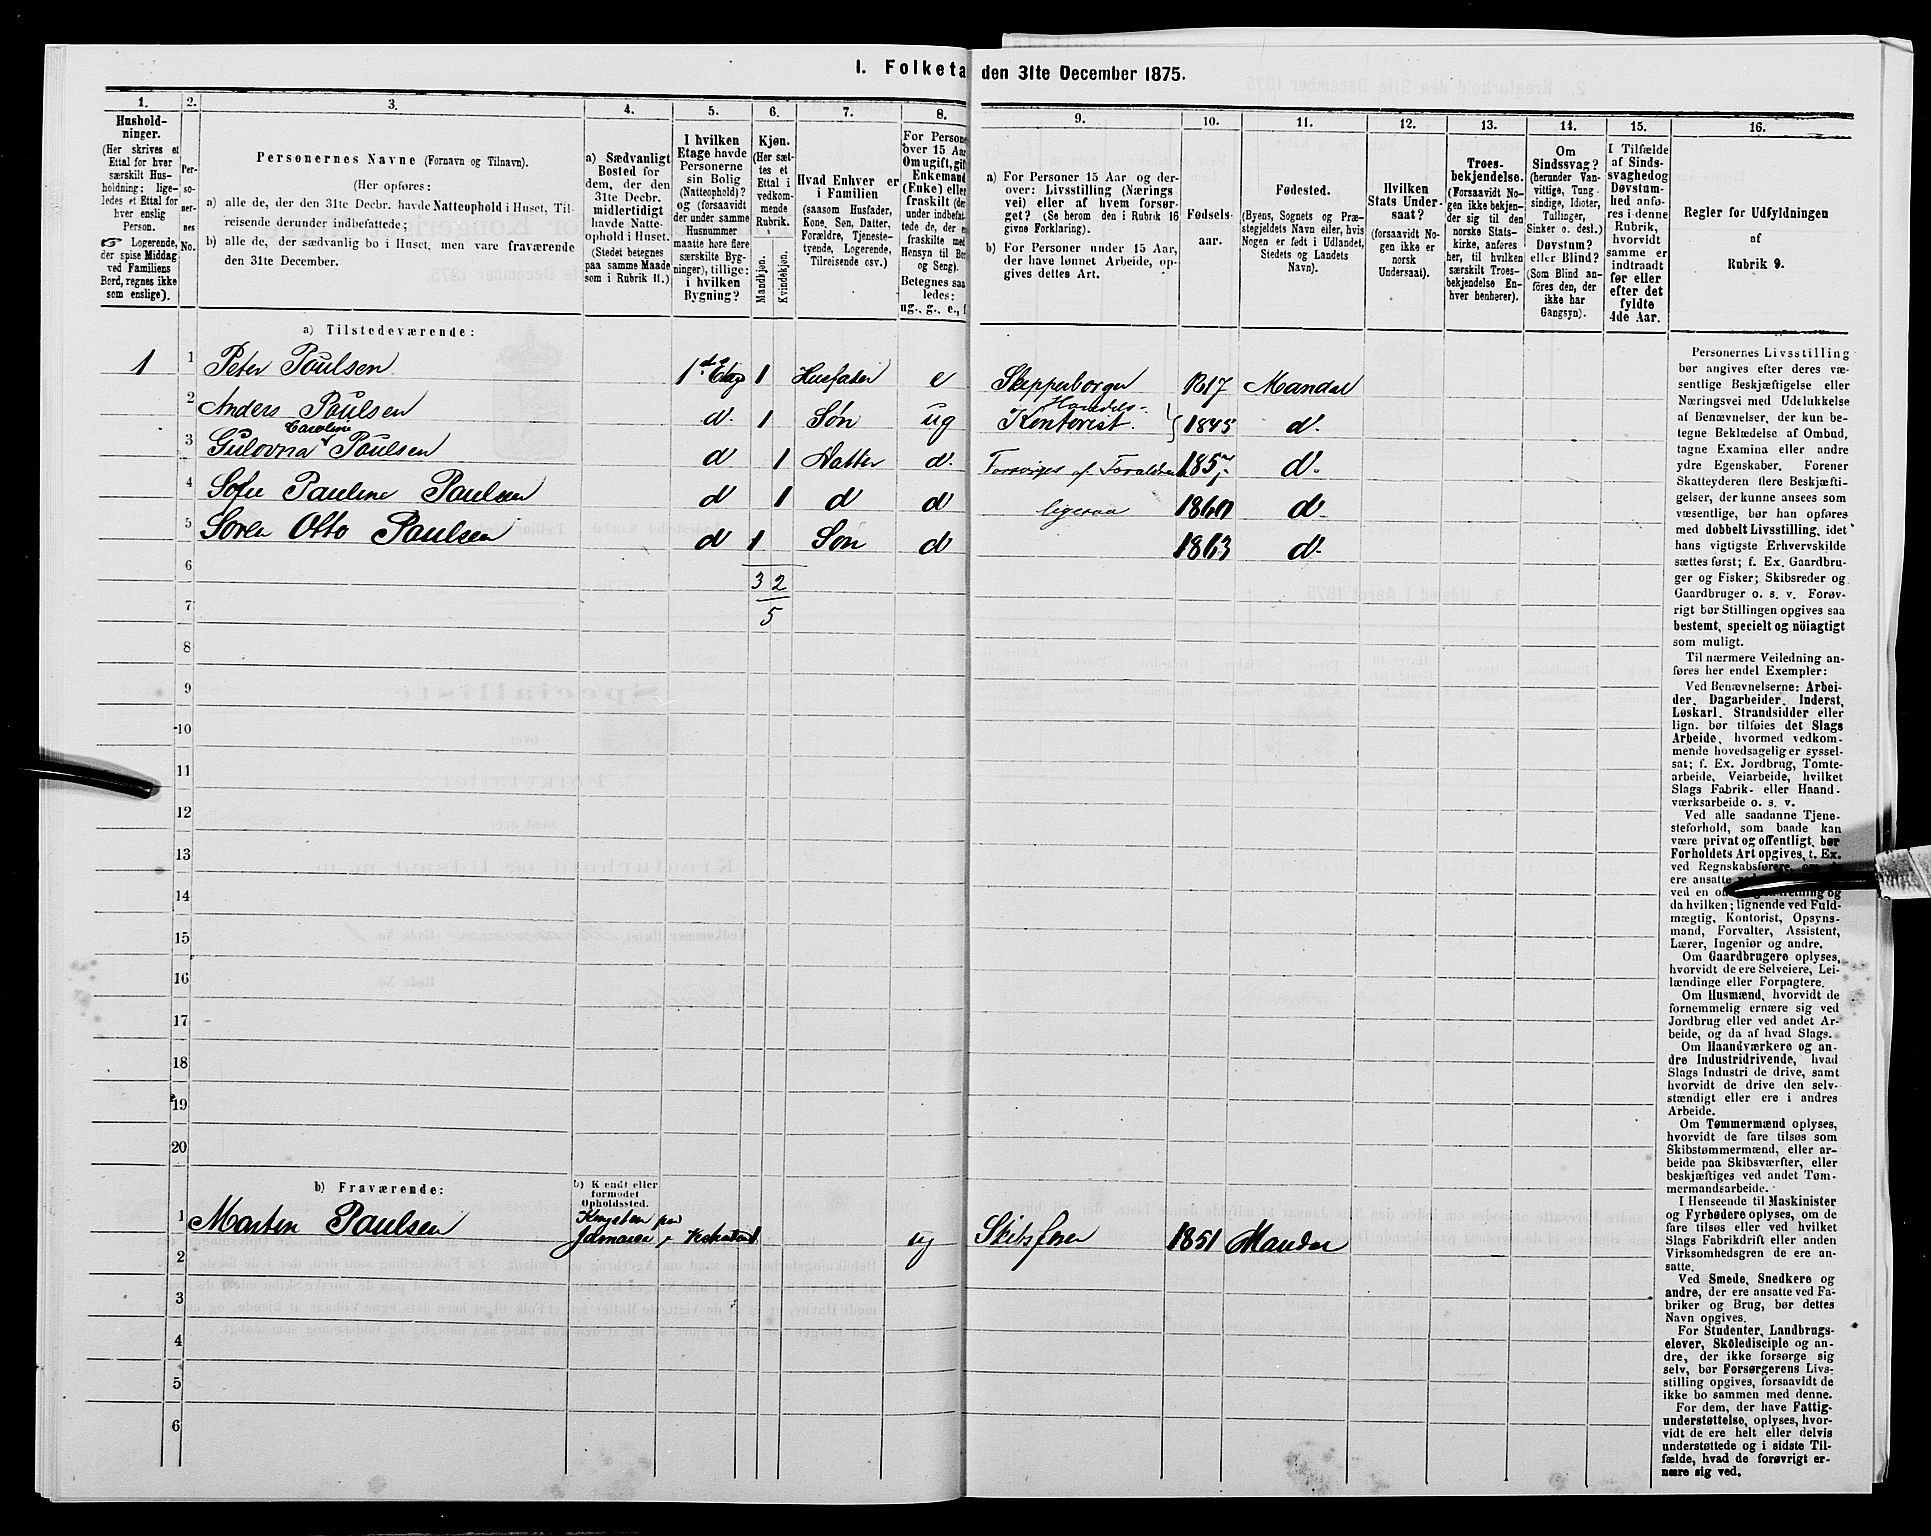 I. Folketa den 31te December 1875.
1.
Hushold-
ninger.
(Her skrives et
Ettal for hver
særskilt Hus-
holdning; lige-
ledes et Ettal for
hver enslig
Person.
☞ Logerende,
der spise Middag
ved Familiens
Bord, regnes ikke
som enslige).
2.
Per-
so-
ner-
nes
No.
3.
Personernes Navne (Fornavn og Tilnavn).
(Her opføres:
a) alle de, der den 31te Decbr. havde Natteophold i Huset, Til-
reisende derunder indbefattede;
b) alle de, der sædvanlig bo i Huset, men vare fraværende
den 31te December.
4.
a) Sædvanligt
Bosted for
dem, der den
31te Decbr.
midlertidigt
havde Natte-
ophold i Huset.
(Stedet betegnes
paa samme Maade
som i Rubrik 11.)
5.
I hvilken
Etage havde
Personerne
sin Bolig
(Natteophold)?
og (forsaavidt
der under samme
Husnummer
maatte høre flere
særskilte Byg-
ninger), tillige:
i hvilken
Bygning?
6.
Kjøn.
(Her sæt-
tes et
Ettal i
vedkom-
mende
Rubrik.
Mandkjøn.
Kvindekjøn.
7.
Hvad Enhver er
i Familien
(saasom Husfader,
Kone, Søn, Datter,
Forældre, Tjeneste-
tyende, Logerende,
Tilreisende osv.)
8.
For Persone
over 15 Aar
Om ugift, gift
Enkemand
(Enke) eller
fraskilt (der
under indbefat-
tede de, der e
fraskilte med
Hensyn til Bor
og Seng).
Betegnes saa
ledes:
ug., g., e., f
9.
a) For Personer 15 Aar og der-
over: Livsstilling (Nærings
vei) eller af hvem forsør-
get? (Se herom den i Rubrik 16
givne Forklaring).
b) For Personer under 15 Aar,
der have lønnet Arbeide, op-
gives dettes Art.
10.
Fødsels-
aar.
11.
Fødested.
(Byens, Sognets og Præ-
stegjeldets Navn eller, hvis
Nogen er født i Udlandet,
Stedets og Landets
Navn).
12.
Hvilken
Stats Under-
saat?
(forsaavidt No-
gen ikke er
norsk
Undersaat).
13.
Troes-
bekjendelse.
(Forsaavidt No-
gen ikke bekjen-
der sig til den
norske Stats-
kirke, anføres
her, til hvilken
særskilt Troes-
bekjendelse En-
hver henhører).
14.
Om
Sindssvag?
(herunder Van-
vittige, Tung-
sindige, Idioter,
Tullinger,
Sinker o. desl.)
Døvstum?
eller Blind?
(Som Blind an-
føres den, der
ikke har
Gangsyn).
15.
I Tilfælde
af Sinds-
svaghed og
Døvstum-
hed anfø-
res i denne
Rubrik,
hvorvidt
samme er
indtraadt
før eller
efter det
fyldte
4de Aar.
16.
Regler for Udfyldningen
af
Rubrik 9.
a) Tilstedeværende:
1 1 Peter Paulsen 1ste Etag 1 Husfader e Skipperborger 1817 Mandal
2 Anders Paulsen d. 1 Søn ug Handels-
Kontorist. 1845 d.
3 Gulovna Caroline Paulsen d 1 Datter d. Forsørges af Forældre 1857 d.
4 Sofie Pauline Paulsen d 1 d d ligesaa 1860 d
5 Søren Otto Paulsen d 1 Søn d 1863 d.
6 3 2
7 5
8
9
10
11
12
13
14
15
16
17
18
19
20
b) Fraværende:
b) Kjendt eller
formodet
Opholdssted.
1 Morten Paulsen Kingston paa
Jamaica ug Skibsfører 1851 Mandal
2
3
4
5
6
Personernes Livsstilling
bør angives efter deres væ-
sentlige Beskjæftigelse eller
Næringsvei med Udelukkelse
af Benævnelser, der kun be-
tegne Beklædelse af Ombud,
tagne Examina eller andre
ydre Egenskaber. Forener
Skatteyderen flere Beskjæfti-
gelser, der kunne ansees som
væsentlige, bør han opføres
med dobbelt Livsstilling, idet
hans vigtigste Erhvervskilde
sættes først; f. Ex. Gaardbru-
ger og Fisker; Skibsreder og
Gaardbruger o. s. v. Forøv-
rigt bør Stillingen opgives saa
bestemt, specielt og nöiagtigt
som muligt.
Til nærmere Veiledning an-
føres her endel Exempler:
Ved Benævnelserne: Arbei-
der, Dagarbeider, Inderst,
Løskarl, Strandsidder eller
lign. bør tilføies det Slags
Arbeide, hvormed vedkom-
mende hovedsagelig er syssel-
sat; f. Ex. Jordbrug, Tomte-
arbeide, Veiarbeide, hvilket
Slags Fabrik- eller Haand-
værksarbeide o. s. v.
Ved alle saadanne Tjene-
steforhold, som baade kan
være privat og offentligt, bør
Forholdets Art opgives, t. Ex.
ved Regnskabsførere,
ere ansatte
ved en
da hvilken; lignende ved Fuld-
mægtig, Kontorist, Opsyns-
mand, Forvalter, Assistent,
Lærer, Ingeniør og andre.
Om Gaardbrugere oplyses,
hvorvidt de ere Selveiere, Lei-
lændinge eller Forpagtere.
Om Husmænd, hvorvidt de
fornemmelig ernære sig ved
Jordbrug eller ved andet Ar-
beide, og da af hvad Slags.
Om Haandværkere og an-
dre Industridrivende, hvad
Slags Industri de drive, samt
hvorvidt de drive den selv-
stændigt eller ere i andres
Arbeide.
Om Tømmermænd oplyses,
hvorvidt de fare tilsøs som
Skibstømmermænd, eller ar-
beide paa Skibsværfter, eller
beskjæftiges ved andet Tøm-
mermandsarbeide.
I Henseende til Maskinister
og Fyrbødere oplyses, om de
fare tilsøs eller ved hvilket
Slags Fabrikdrift eller anden
Virksomhedsgren de ere an-
satte.
Ved Smede, Snedkere og
andre, der ere ansatte ved Fa-
briker og Brug, bør dettes
Navn opgives.
For Studenter, Landbrugs-
elever, Skôledisciple og an-
dre, der ikke forsørge sig
selv, bør Forsørgerens Livs-
stilling opgives, forsaavidt de
ikke bo sammen med denne.
For dem, der have Fattig-
understøttelse, oplyses, hvor-
vidt de ere helt eller delvis
understøttede og i sidste Til-
fælde, hvad de forøvrigt er-
nære sig ved.